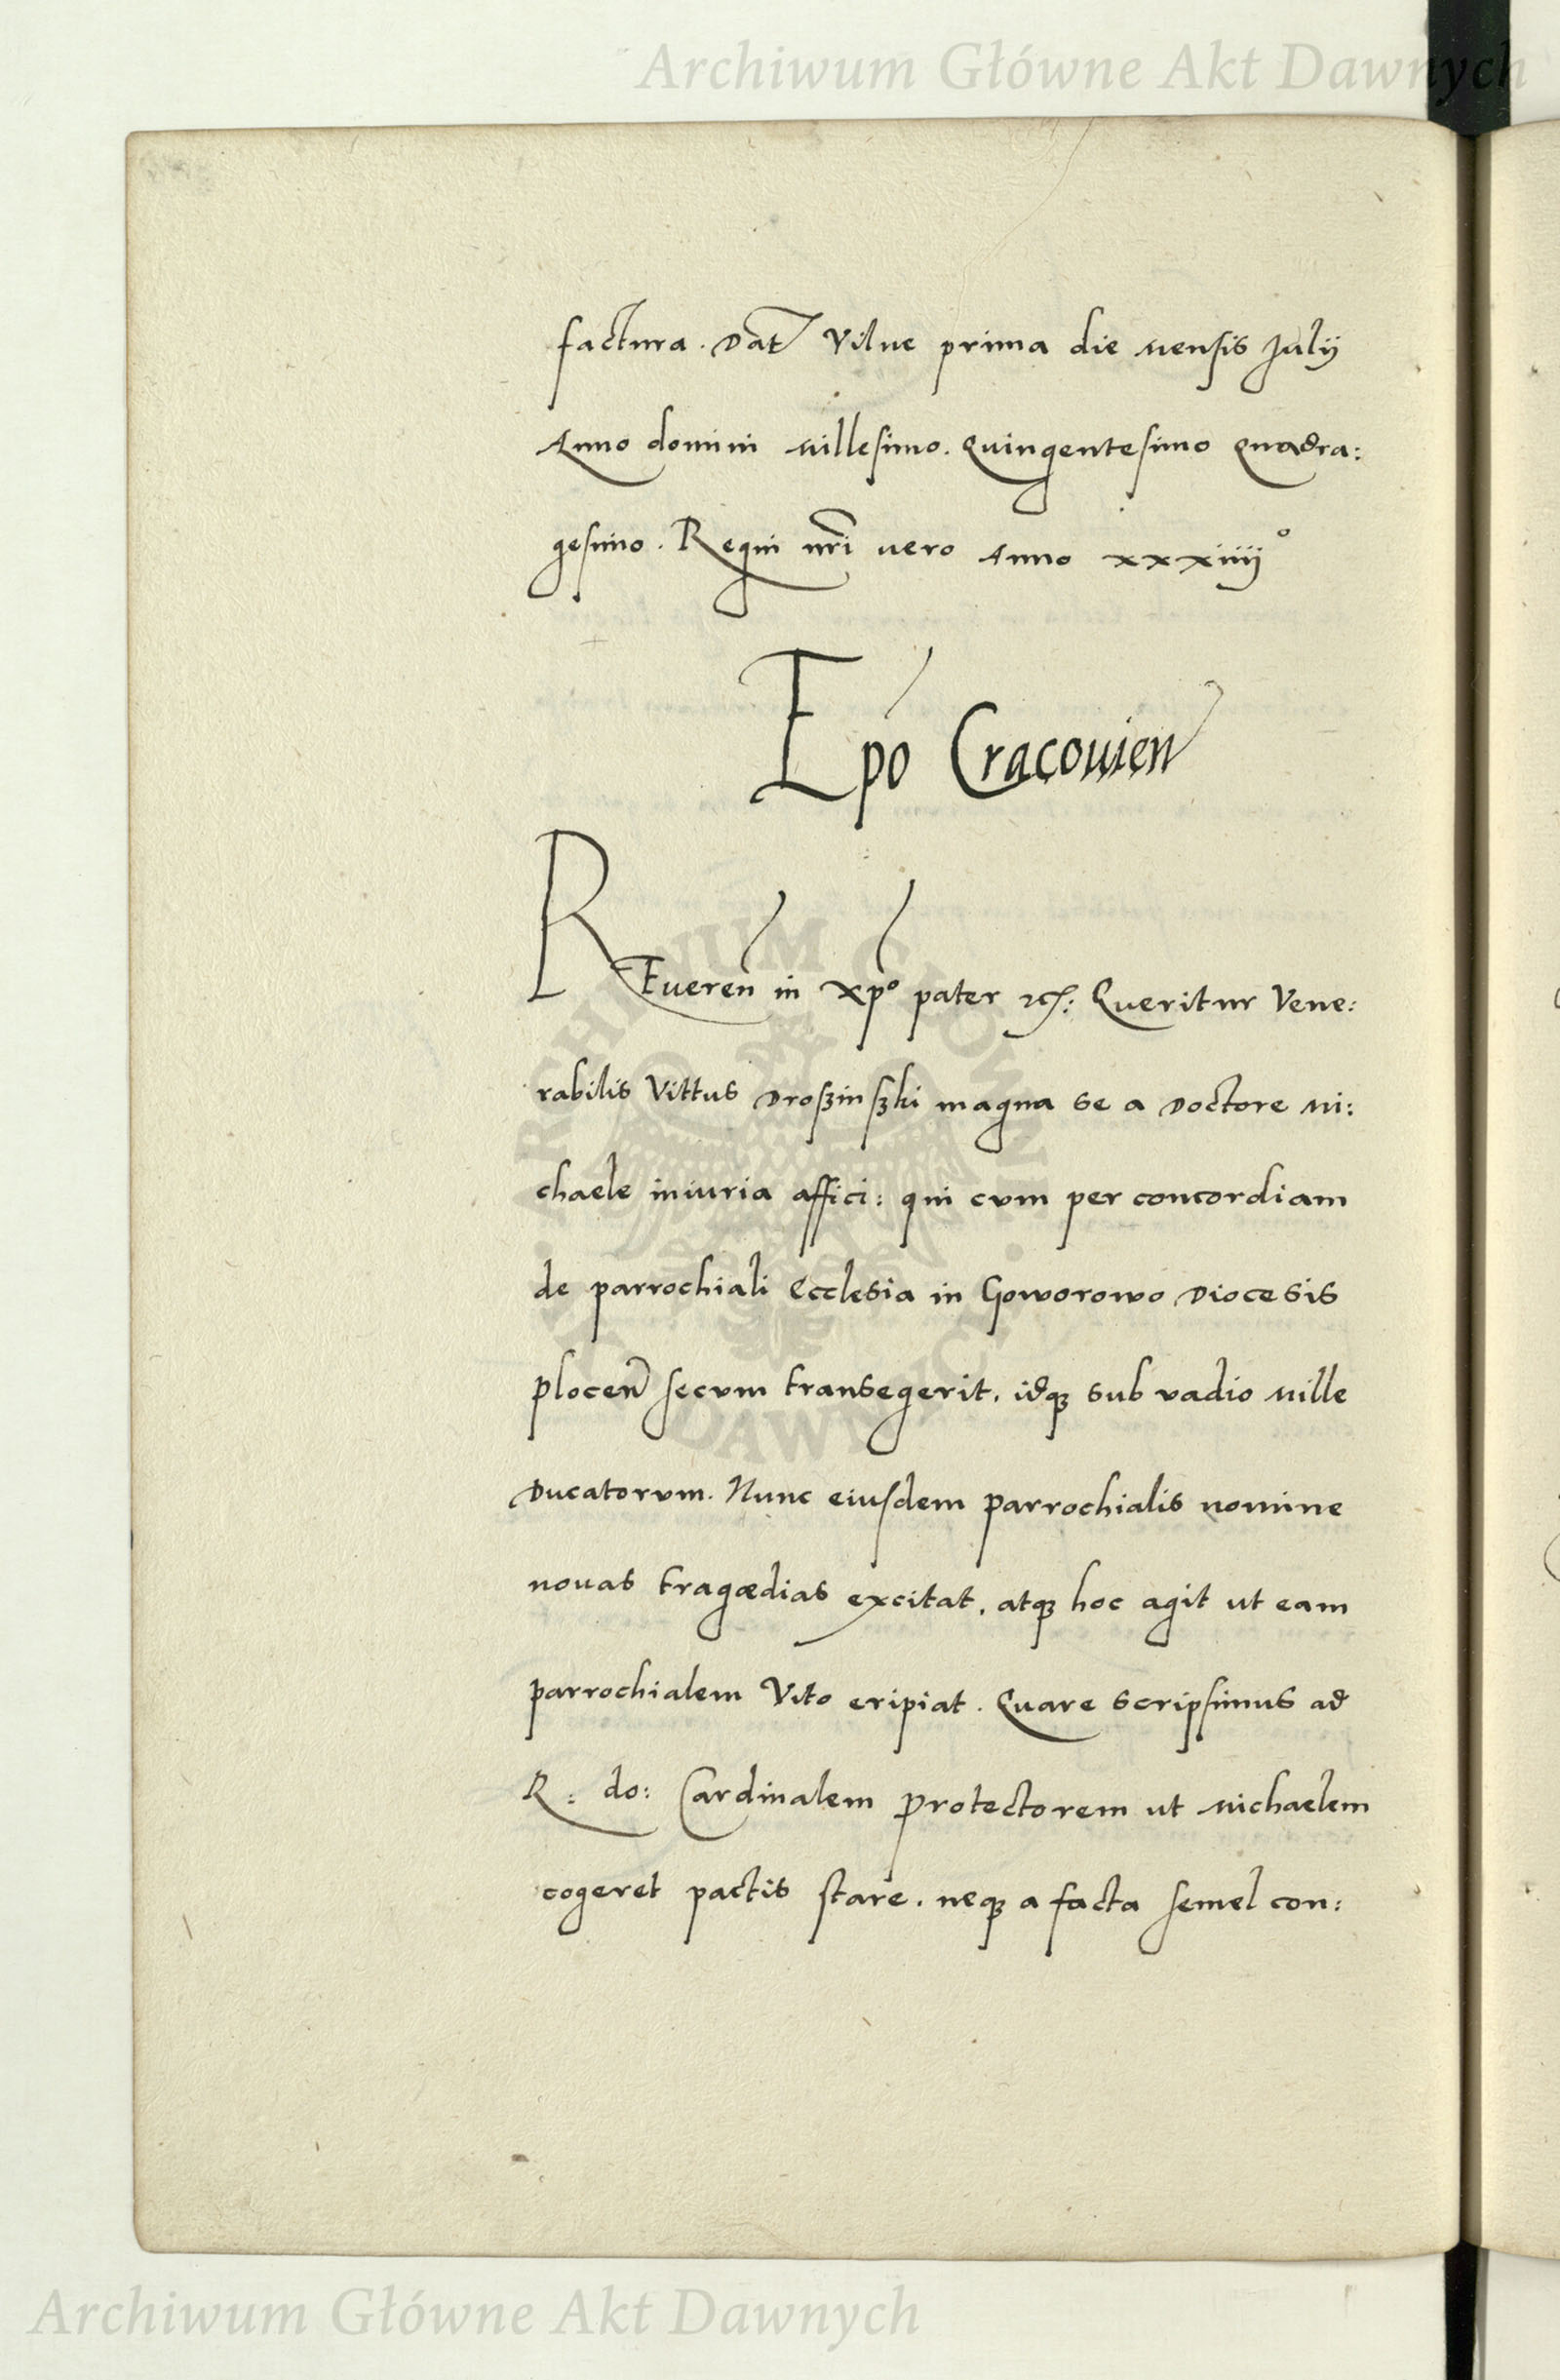 Archiwum Główne Akt Dawnych
factura. Dat Vilne prima die Mensis Julij
Anno domini Millesimo. Quingentesimo Quadra:
gesimo. Regni nri vero Anno xxxiiij°
Epo Cracouien
REueren in Xpo pater etc: Queritur Vene:
rabilis Vittus Droszinszki magna se a Doctore Mi:
chaele iniuria affici: qui cum per concordiam
de parrochiali Ecclesia in Goworowo Diocesis
plocen secum transegerit. idque sub vadio Mille
Ducatorum. Nunc eiusdem parrochialis nomine
nouas tragœdias excitat. atque hoc agit ut eam
parrochialem Vito eripiat. Quare scripsimus ad
R: do: Cardinalem protectorem ut Michaelem
cogeret pactis stare. neque a facta semel con:
ARCHIWUM GŁÓWNE AKT DAWNYCH
Archiwum Główne Akt Dawnych